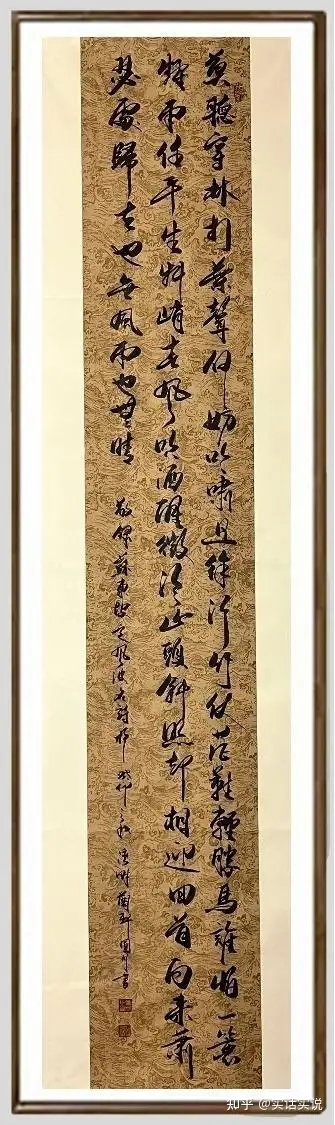 莫聽穿林打葉聲何妨吟嘯且徐行竹杖芒鞋輕勝馬誰怕一簑
烟雨任平生料峭春風吹酒醒微冷山頭斜照却相迎回首向來蕭
瑟處歸去也無風雨也無晴
敬錄蘇東坡定風波 癸卯 書
知乎 @实话实说